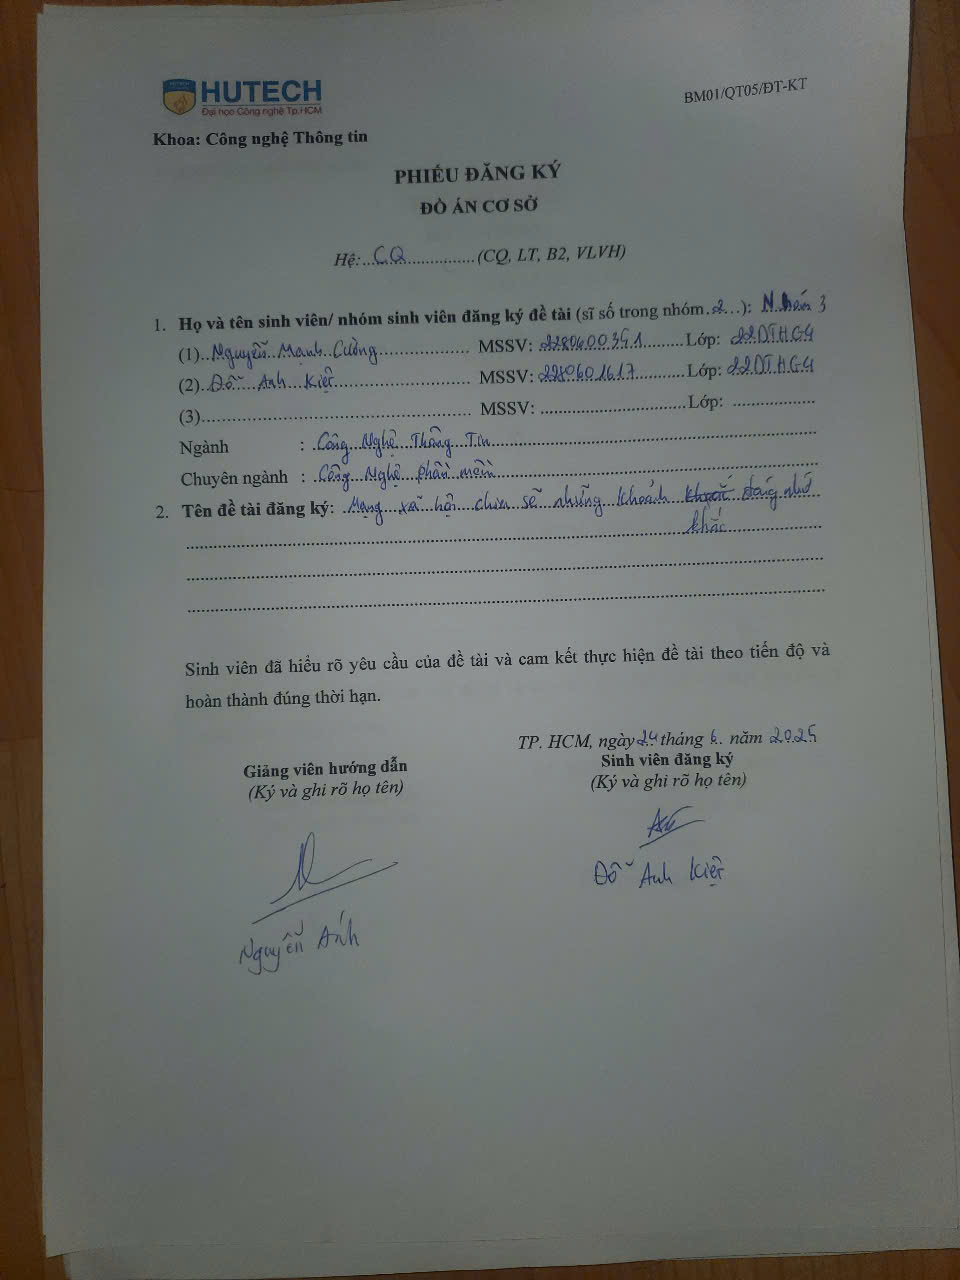 HUTECH
Đại học Công nghệ Tp.HCM
BM01/QT05/ĐT-KT
Khoa: Công nghệ Thông tin
PHIẾU ĐĂNG KÝ
ĐỒ ÁN CƠ SỞ
Hệ: CQ (CQ, LT, B2, VLVH)
1. Họ và tên sinh viên/ nhóm sinh viên đăng ký đề tài (sĩ số trong nhóm 2): Nhóm 3
(1) Nguyễn Mạnh Cường MSSV: 2280400351 Lớp: 22DTHG4
(2) Đỗ Anh Kiệt MSSV: 2280601617 Lớp: 22DTHG4
(3) MSSV: Lớp:
Ngành : Công Nghệ Thông Tin
Chuyên ngành : Công Nghệ phần mềm
2. Tên đề tài đăng ký: Mạng xã hội chia sẽ những khoảnh đáng nhớ
khắc
Sinh viên đã hiểu rõ yêu cầu của đề tài và cam kết thực hiện đề tài theo tiến độ và
hoàn thành đúng thời hạn.
TP. HCM, ngày 24 tháng 6 năm 2025
Giảng viên hướng dẫn Sinh viên đăng ký
(Ký và ghi rõ họ tên) (Ký và ghi rõ họ tên)
Đỗ Anh Kiệt
Nguyễn Ánh